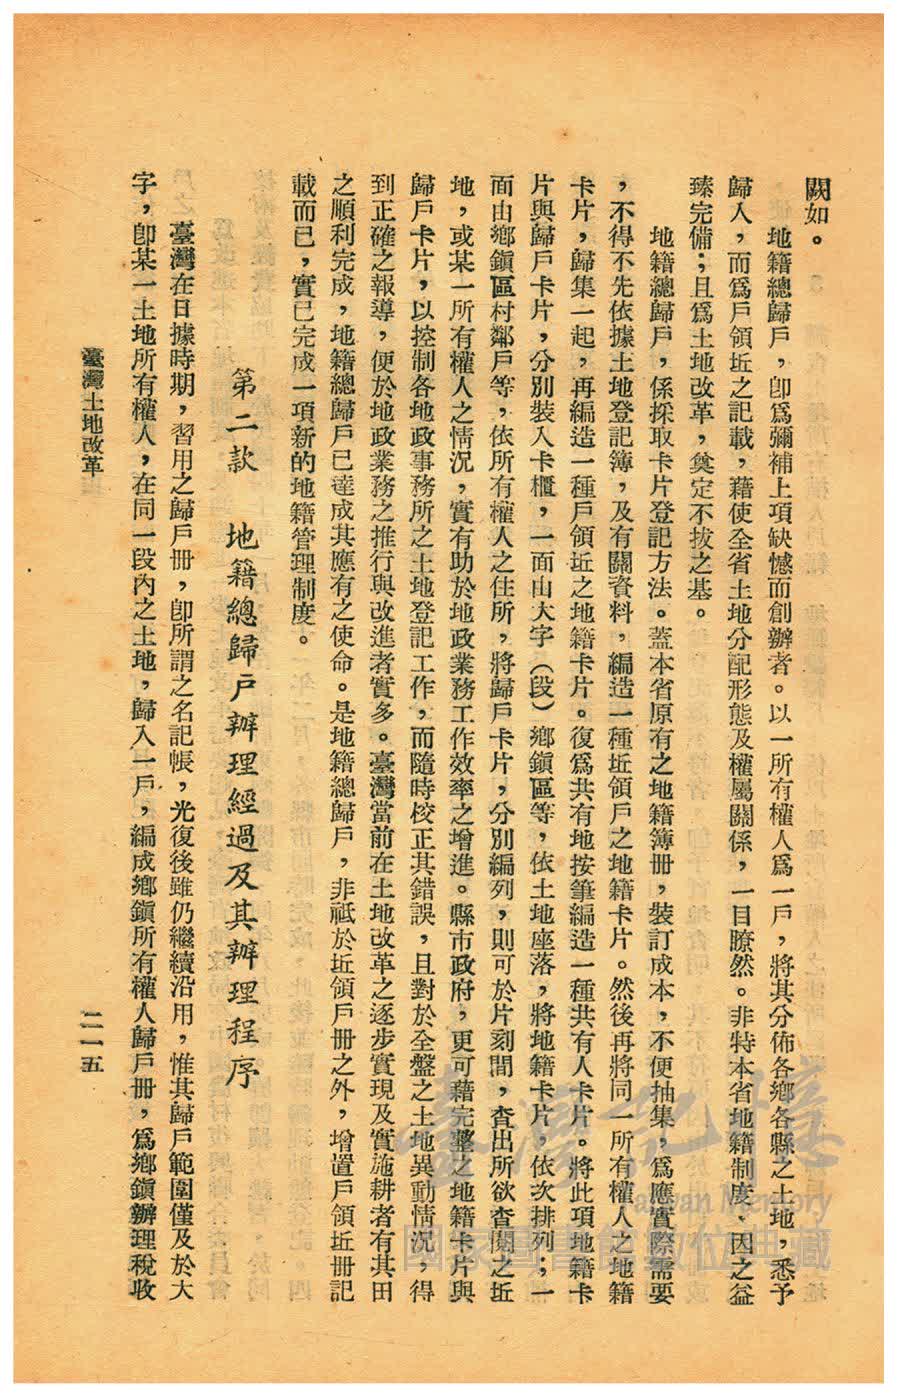 闕如。
地籍總歸戶，卽爲彌補上項缺憾而創辦者。以一所有權人爲一戶，將其分佈各鄉各縣之土地，悉予
歸入，而爲戶領坵之記載，藉使全省土地分配形態及權屬關係，一目瞭然。非特本省地籍制度、因之益
臻完備；且爲土地改革，奠定不拔之基。
地籍總歸戶，係採取卡片登記方法。蓋本省原有之地籍簿册，裝訂成本，不便抽集，爲應實際需要
，不得不先依據土地登記簿，及有關資料，編造一種坵領戶之地籍卡片。然後再將同一所有權人之地籍
卡片，歸集一起，再編造一種戶領坵之地籍卡片。復爲共有地按筆編造一種共有人卡片。將此項地籍卡
片與歸戶卡片，分別裝入卡櫃，一面由大字（段）鄉鎭區等，依土地座落，將地籍卡片，依次排列；一
面由鄉鎭區村鄰戶等，依所有權人之住所，將歸戶卡片，分別編列，則可於片刻間，查出所欲查閱之坵
地，或某一所有權人之情況，實有助於地政業務工作效率之增進。縣市政府，更可藉完整之地籍卡片與
歸戶卡片，以控制各地政事務所之土地登記工作，而隨時校正其錯誤，且對於全盤之土地異動情況，得
到正確之報導，便於地政業務之推行與改進者實多。臺灣當前在土地改革之逐步實現及實施耕者有其田
之順利完成，地籍總歸戶已達成其應有之使命。是地籍總歸戶，非祗於坵領戶册之外，增置戶領坵册記
載而已，實已完成一項新的地籍管理制度。
第二款　地籍總歸戶辦理經過及其辦理程序
臺灣在日據時期，習用之歸戶册，卽所謂之名記帳，光復後雖仍繼續沿用，惟其歸戶範圍僅及於大
字，卽某一土地所有權人，在同一段內之土地，歸入一戶，編成鄉鎭所有權人歸戶册，爲鄉鎭辦理稅收
臺灣土地改革
二一五
臺灣記憶
Taiwan Memory
國家圖書館數位典藏